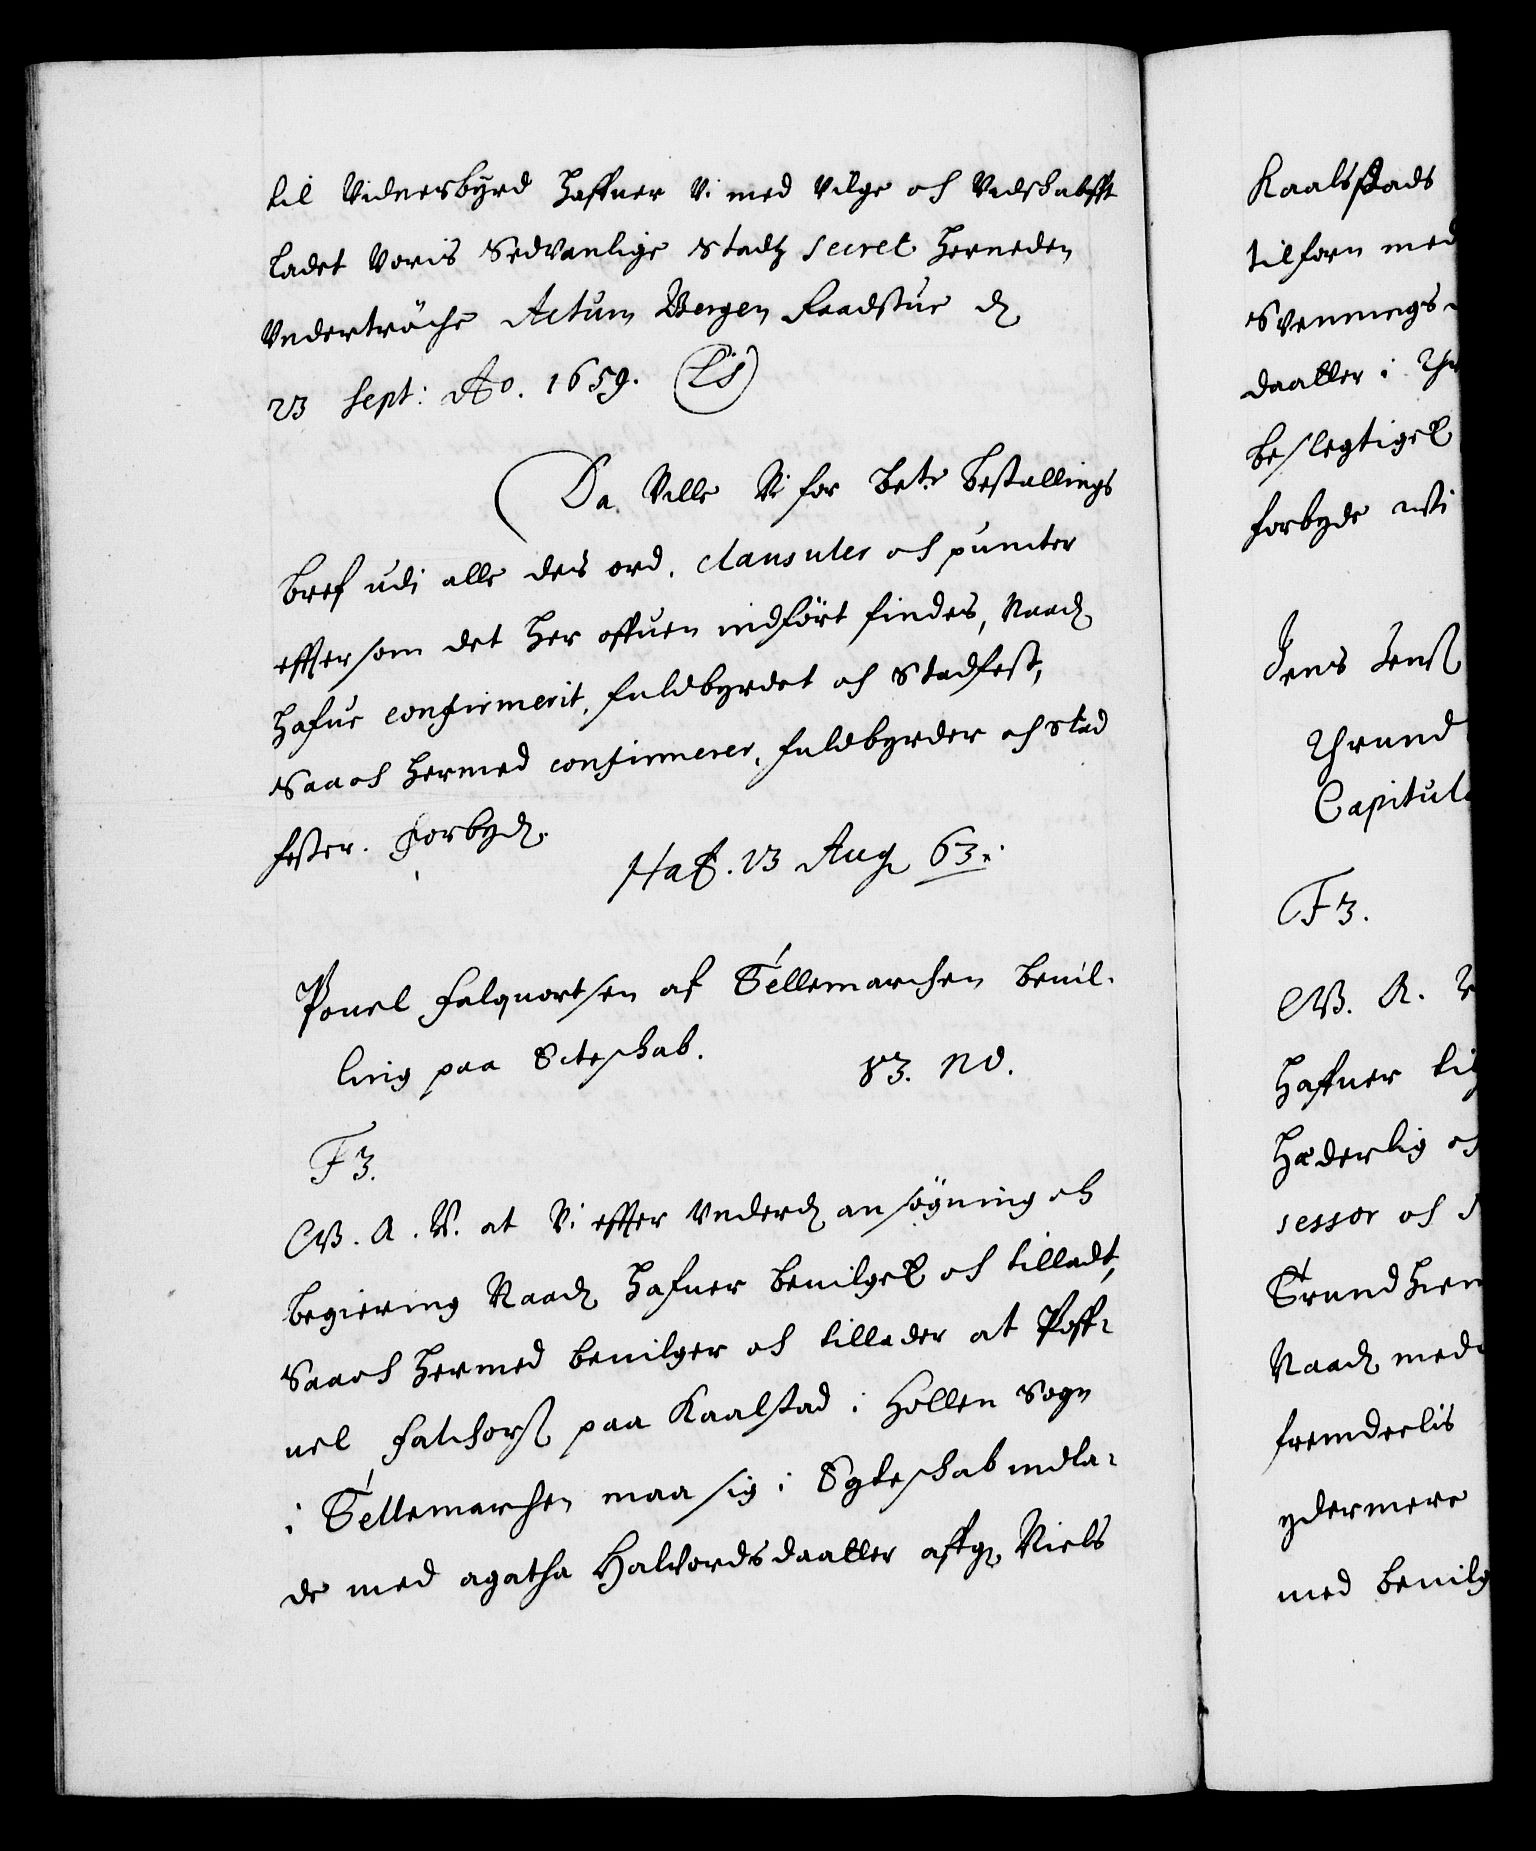 til Vidnesbyrd Haffuer Vi med Vilge och Vidskabfft
ladet Voris Sedvanlige Stadtz secret herneden
Vndertröche Actum Bergen Raadstue d
23 Sept: Ao. 1659. (LS)
Da Ville Vi for bete bestallings
bref udi alle des ord, clausuler och puncter
effter som det her offuen indfört findes, Naad
hafue confirmerit, fuldbyrdet och Stadfest,
Saa och hermed confirmerer, fuldbyrder och stad
fester. Forbyd.
Haf. 23 Aug 63.
Pouel Falquortsen af Tellemarchen beuil-
ling paa Ecteskab.
F3.
C. A. V. at Vi effter Vnderd ansögning och
begiering Naad hafuer beuilget och tilladt,
Saa och hermed beuilger och tillader at Poff-
uel Falchors paa Kaalstad i Hollen Sogn
i Tellemarchen maa sig i Egteskab indla-
de med agatha Halvordsdaatter affg Niels
Kaalstads
tilforn med
Svennings
daatter i
beslegtiget
forbyde
Jens Jens
Thrund
Capitul
F3.
Haffuer
Hæderlig och
sessor och
Trundhiem
Naad med
fremdeelis
ydermere
med beuilg